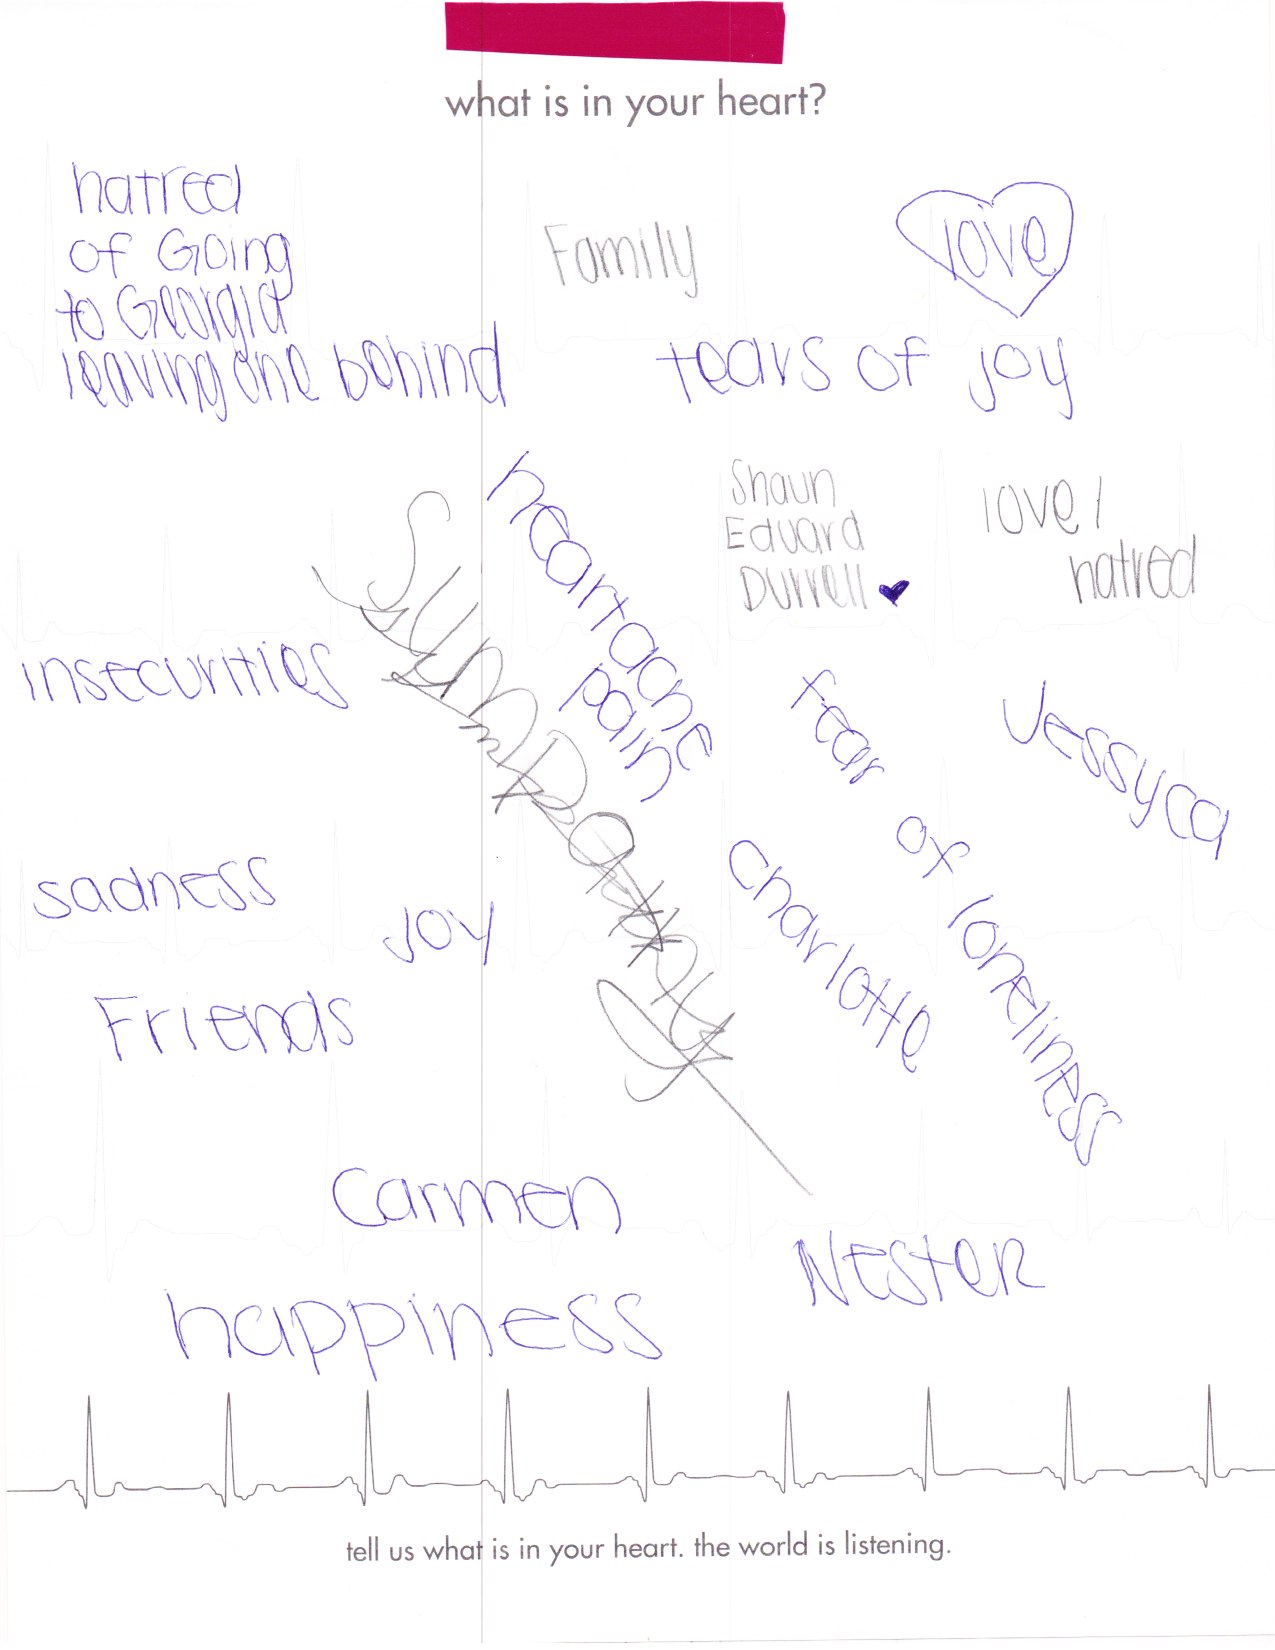 what is in your heart?
hatred
of Going
to Georgia
leaving one behind
Family
love
tears of joy
heartache
pain
Shaun
Eduard
Durrell
love /
hatred
insecurities
fear of loneliness
Jessyca
sadness
joy
charlotte
Friends
Carmen
Nester
happiness
tell us what is in your heart. the world is listening.